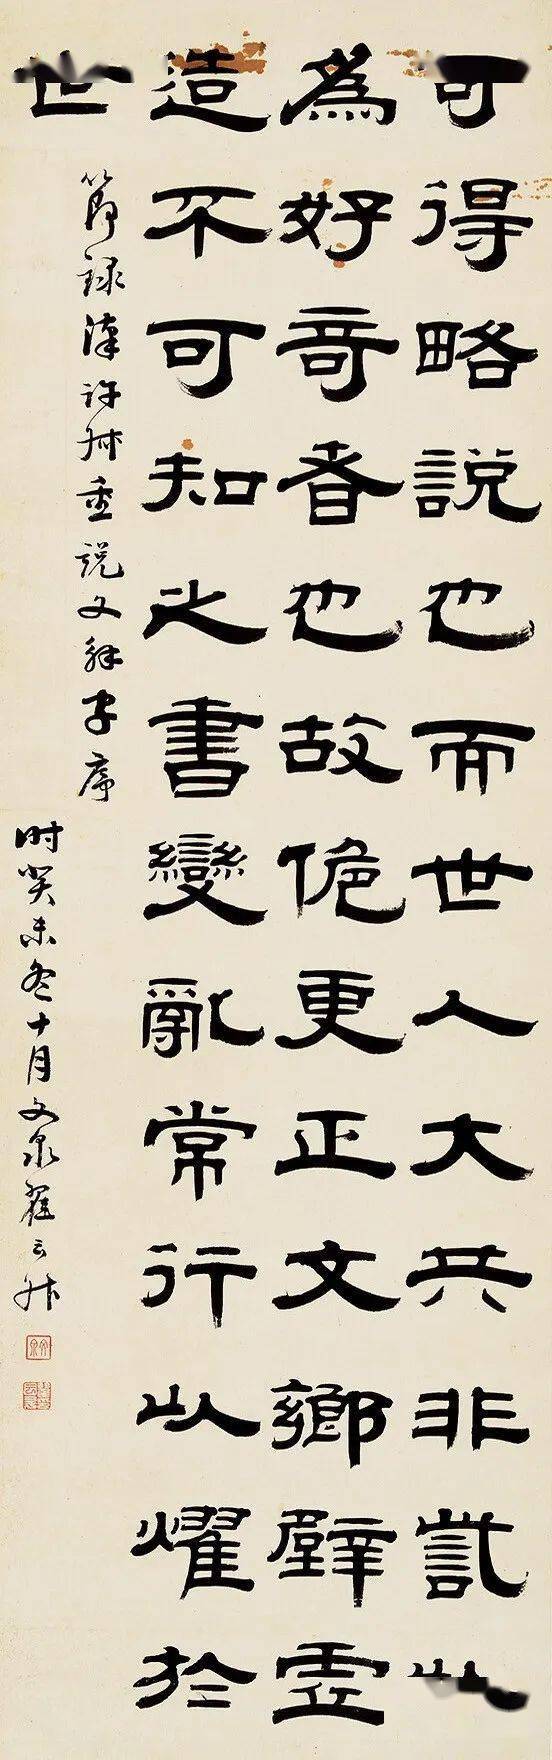 可得略說也而世人大共非訾以
爲好奇者也故佹更正文鄉壁虛
造不可知之書變亂常行以燿於
世
節録漢許叔重説文解字序
時癸未冬十月文泉翟云升